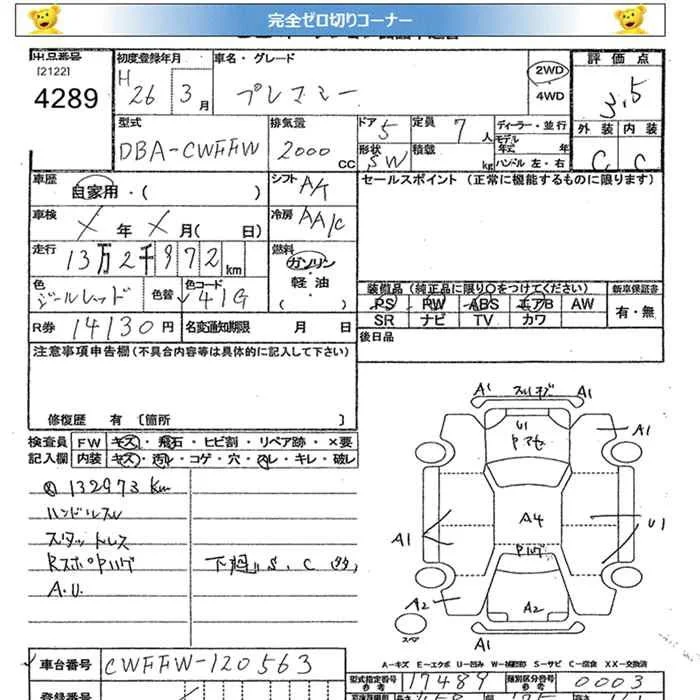 完全ゼロ切りコーナー
出品番号
[2122]
4289
初度登録年月
H 26 3 月
車名・グレード
プレマシー
2WD
4WD
評価点
3.5
外装 内装
C C
型式
DBA-CWFFW
排気量
2000 CC
ドア 5
形状 SW
定員 7 人
積載 kg
ディーラー・並行
モデル年式 年
ハンドル 左・右
車歴
自家用・( )
シフト
A/T
車検
年 月( 日)
冷房
AA/C
走行
13万2千972 km
燃料
ガソリン
軽油
( )
色
ジールレッド
色替
色コード
41G
R券 14130 円
名変通知期限 月 日
セールスポイント (正常に機能するものに限ります)
装備品 (純正品に限り○をつけてください)
PS PW ABS エアB AW
SR ナビ TV カワ
新車保証書
有・無
後日品
注意事項申告欄(不具合内容等は具体的に記入して下さい)
修復歴 有 [箇所 ]
検査員
記入欄
FW キズ・飛石・ヒビ割・リペア跡・×要
内装 キズ・汚レ・コゲ・穴・スレ・キレ・破レ
132973 Km
ハンドルスレ
スタットレス
A.U.
A1 A1
U1
A1
A4
A1
U1
A2
A2
スペア
A1
A-キズ E-エクボ U-凹み W-補修跡 S-サビ C-腐食 XX-交換済
車台番号
CWFFW-120563
型式指定番号
参考
17489
類別区分番号
参考
0003
登録番号